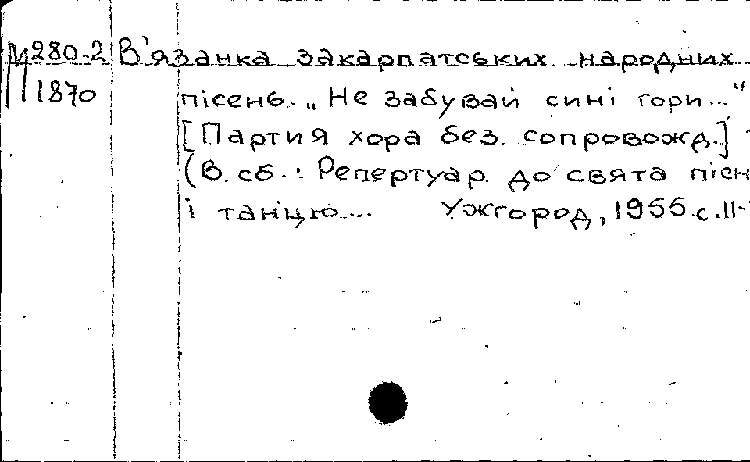 М280-2 В'язанка закарпатських народних
1870 пісень „Не забувай сині гори..."
[Партия хора без сопровожд.]
(В сб.: Репертуар до свята пісн
і танцю... Ужгород, 1955. с. 11-